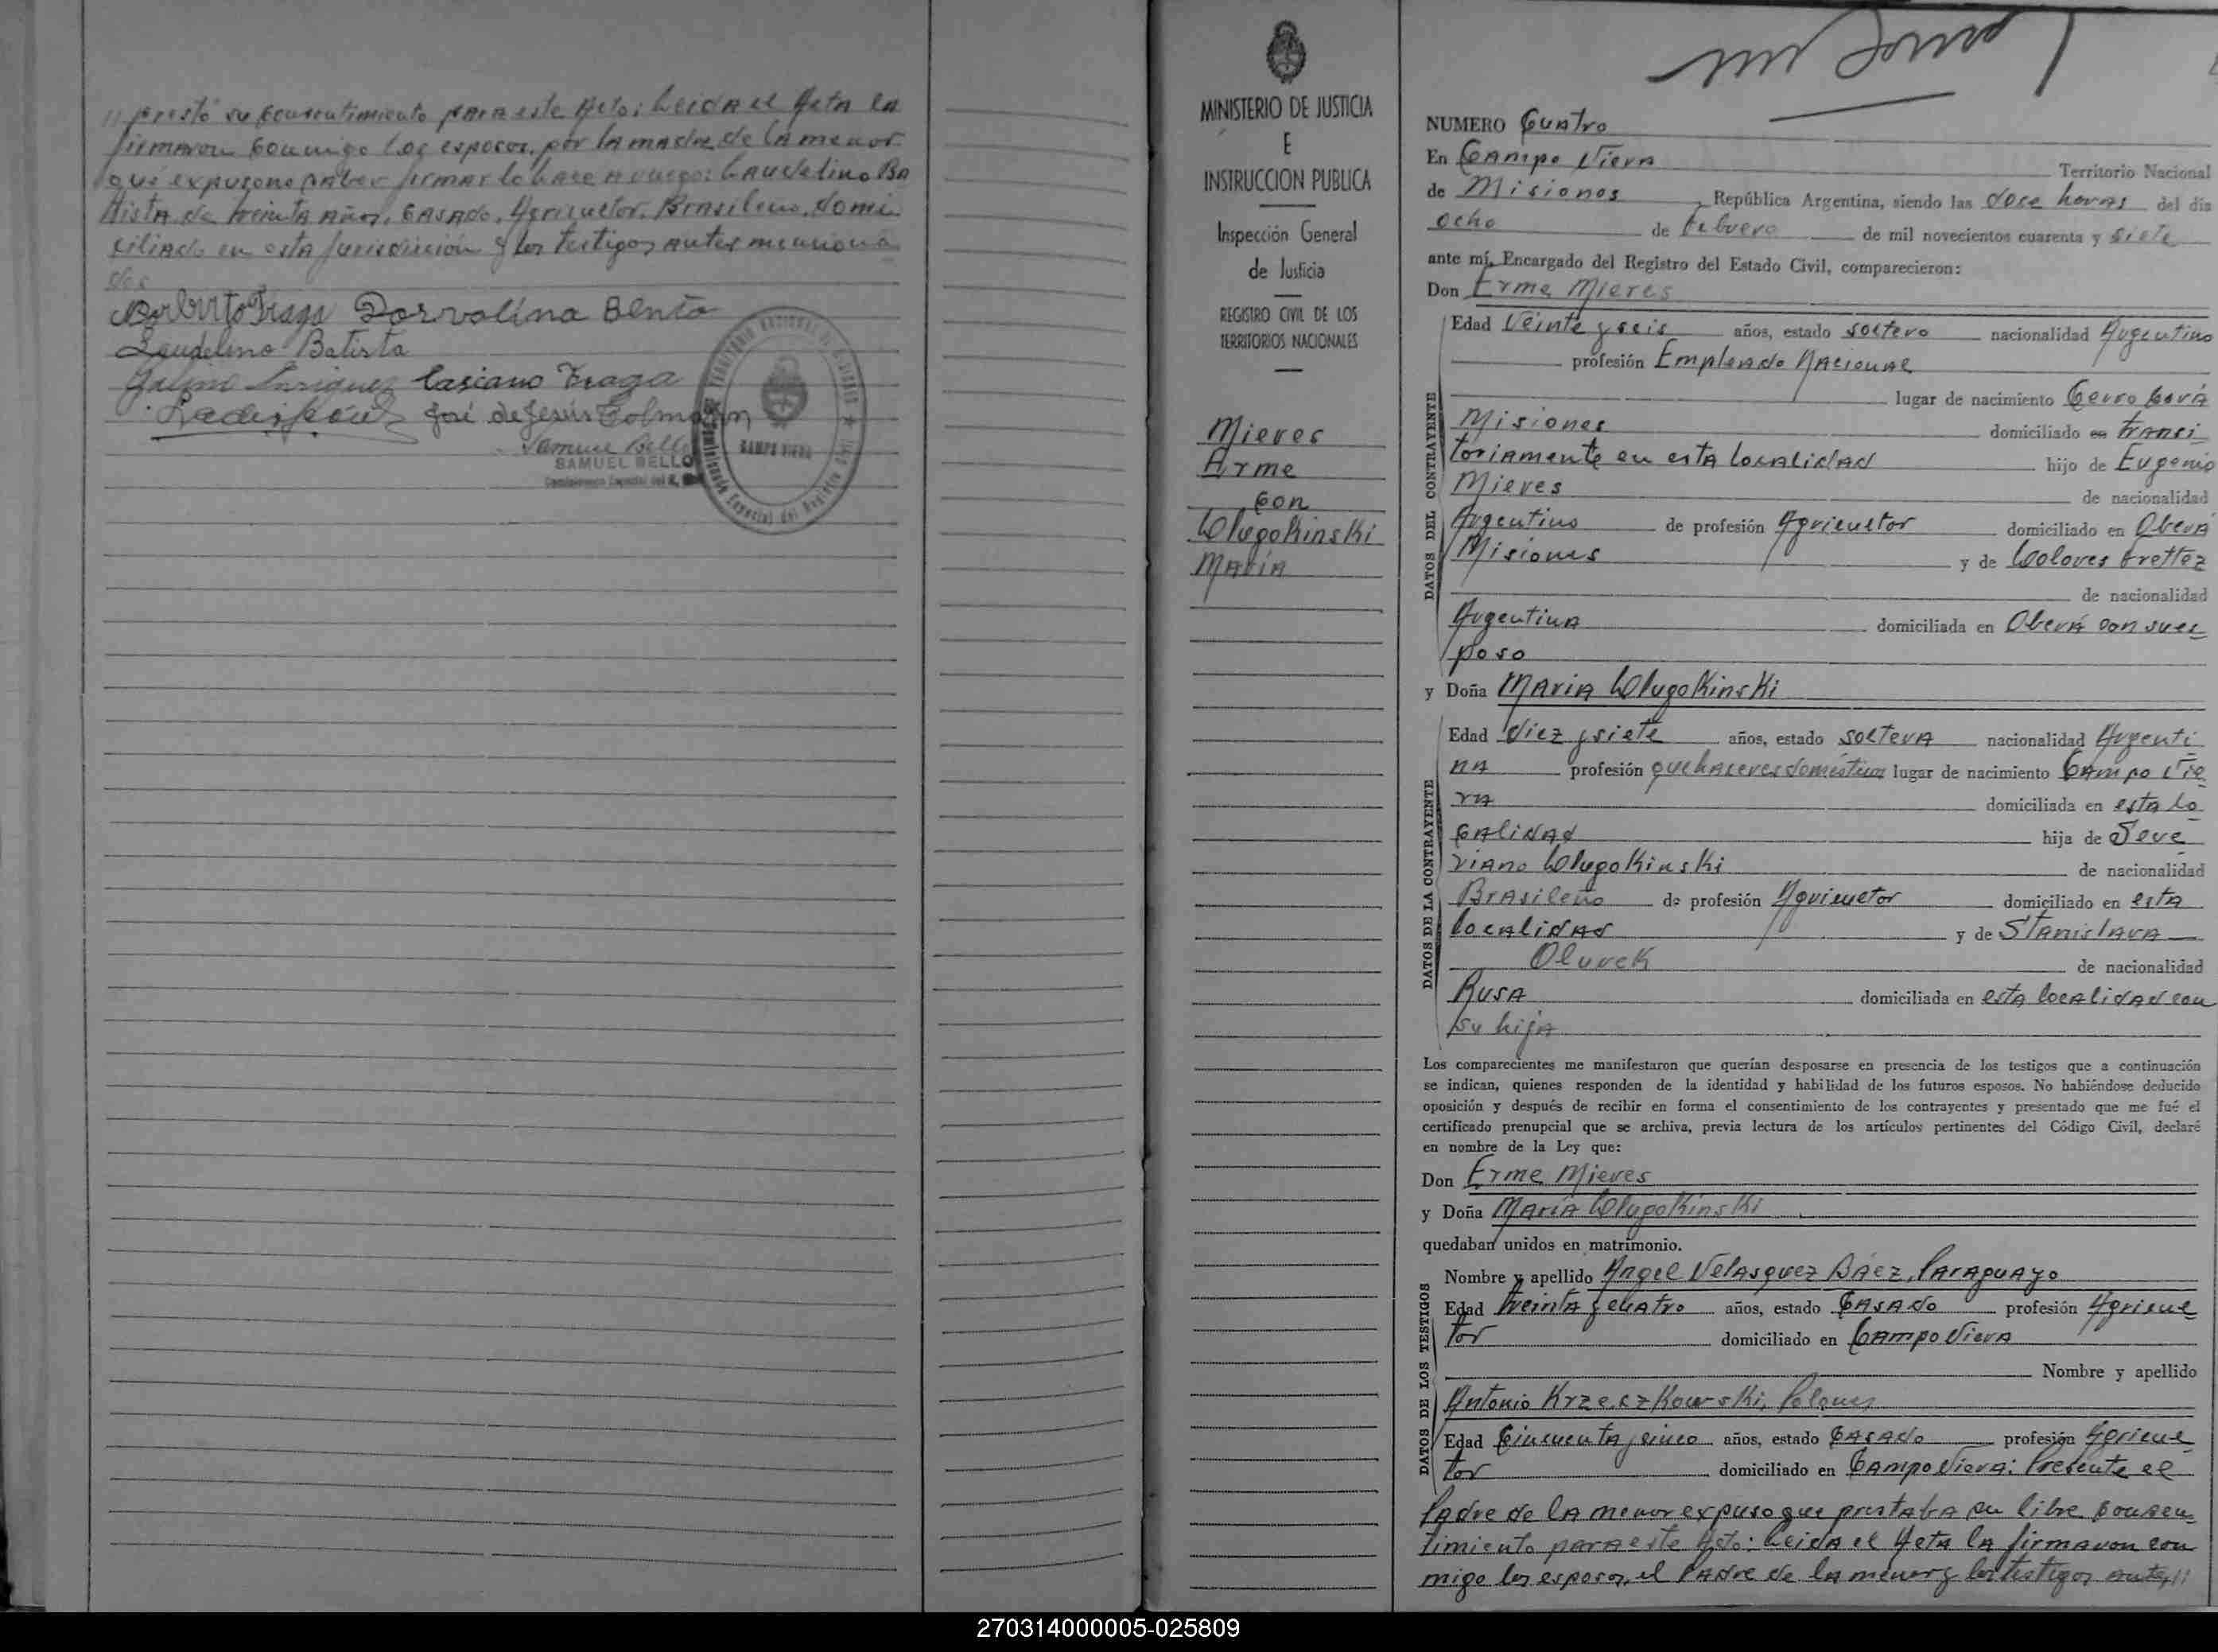 // prestó su consentimiento para este Acto: Leida el Acta la
firmaron conmigo los esposos, por la madre de la menor
que expuso no saber firmar lo hace a ruego: Laudelino Ba
tista de treinta años, casado, Agricultor, Brasileño, domi
ciliado en esta jurisdicción y los testigos antes menciona
dos
Norberto Fraga Dorvalina Bento
Laudelino Batista
Enriquez Casiano Fraga
José de Jesús Colmán
Samuel Bello
SAMUEL BELLO
CAMPO VIERA
MINISTERIO DE JUSTICIA
E
INSTRUCCION PUBLICA
Inspección General
de Justicia
REGISTRO CIVIL DE LOS
TERRITORIOS NACIONALES
Mieres
Arme
con
Dlugokinski
María
NUMERO Cuatro
En Campo Viera Territorio Nacional
de Misiones, República Argentina, siendo las doce horas del día
ocho de febrero de mil novecientos cuarenta y siete
ante mí, Encargado del Registro del Estado Civil, comparecieron:
Don Erme Mieres
DATOS DEL CONTRAYENTE
Edad Veinte y seis años, estado soltero nacionalidad Argentino
profesión Empleado Nacional
lugar de nacimiento Cerro Corá
Misiones domiciliado en transi
toriamente en esta localidad hijo de Eugenio
Mieres de nacionalidad
Argentino de profesión Agricultor domiciliado en Oberá
Misiones y de Dolores Brettez
de nacionalidad
Argentina domiciliada en Oberá con su es
poso
y Doña Maria Dlugokinski
DATOS DE LA CONTRAYENTE
Edad diez y siete años, estado soltera nacionalidad Argenti
na profesión quehaceres domésticos lugar de nacimiento Campo Vie
ra domiciliada en esta lo
calidad hija de Seve
riano Dlugokinski de nacionalidad
Brasileño de profesión Agricultor domiciliado en esta
localidad y de Stanislava
Oluvek de nacionalidad
Rusa domiciliada en esta localidad con
su hija
Los comparecientes me manifestaron que querían desposarse en presencia de los testigos que a continuación
se indican, quienes responden de la identidad y habilidad de los futuros esposos. No habiéndose deducido
oposición y después de recibir en forma el consentimiento de los contrayentes y presentado que me fué el
certificado prenupcial que se archiva, previa lectura de los artículos pertinentes del Código Civil, declaré
en nombre de la Ley que:
Don Erme Mieres
y Doña María Dlugokinski
quedaban unidos en matrimonio.
DATOS DE LOS TESTIGOS
Nombre y apellido Angel Velasquez Báez, Paraguayo
Edad treinta y cuatro años, estado casado profesión Agricul
tor domiciliado en Campo Viera
Nombre y apellido
Antonio Krzeczkowski, Polones
Edad Cincuenta y cinco años, estado casado profesión Agricul
tor domiciliado en Campo Viera: Presente el
Padre de la menor expuso que prestaba su libre consen
timiento para este Acto: Leida el Acta la firmaron con
migo los esposos, el Padre de la menor y los testigos antes //
270314000005-025809